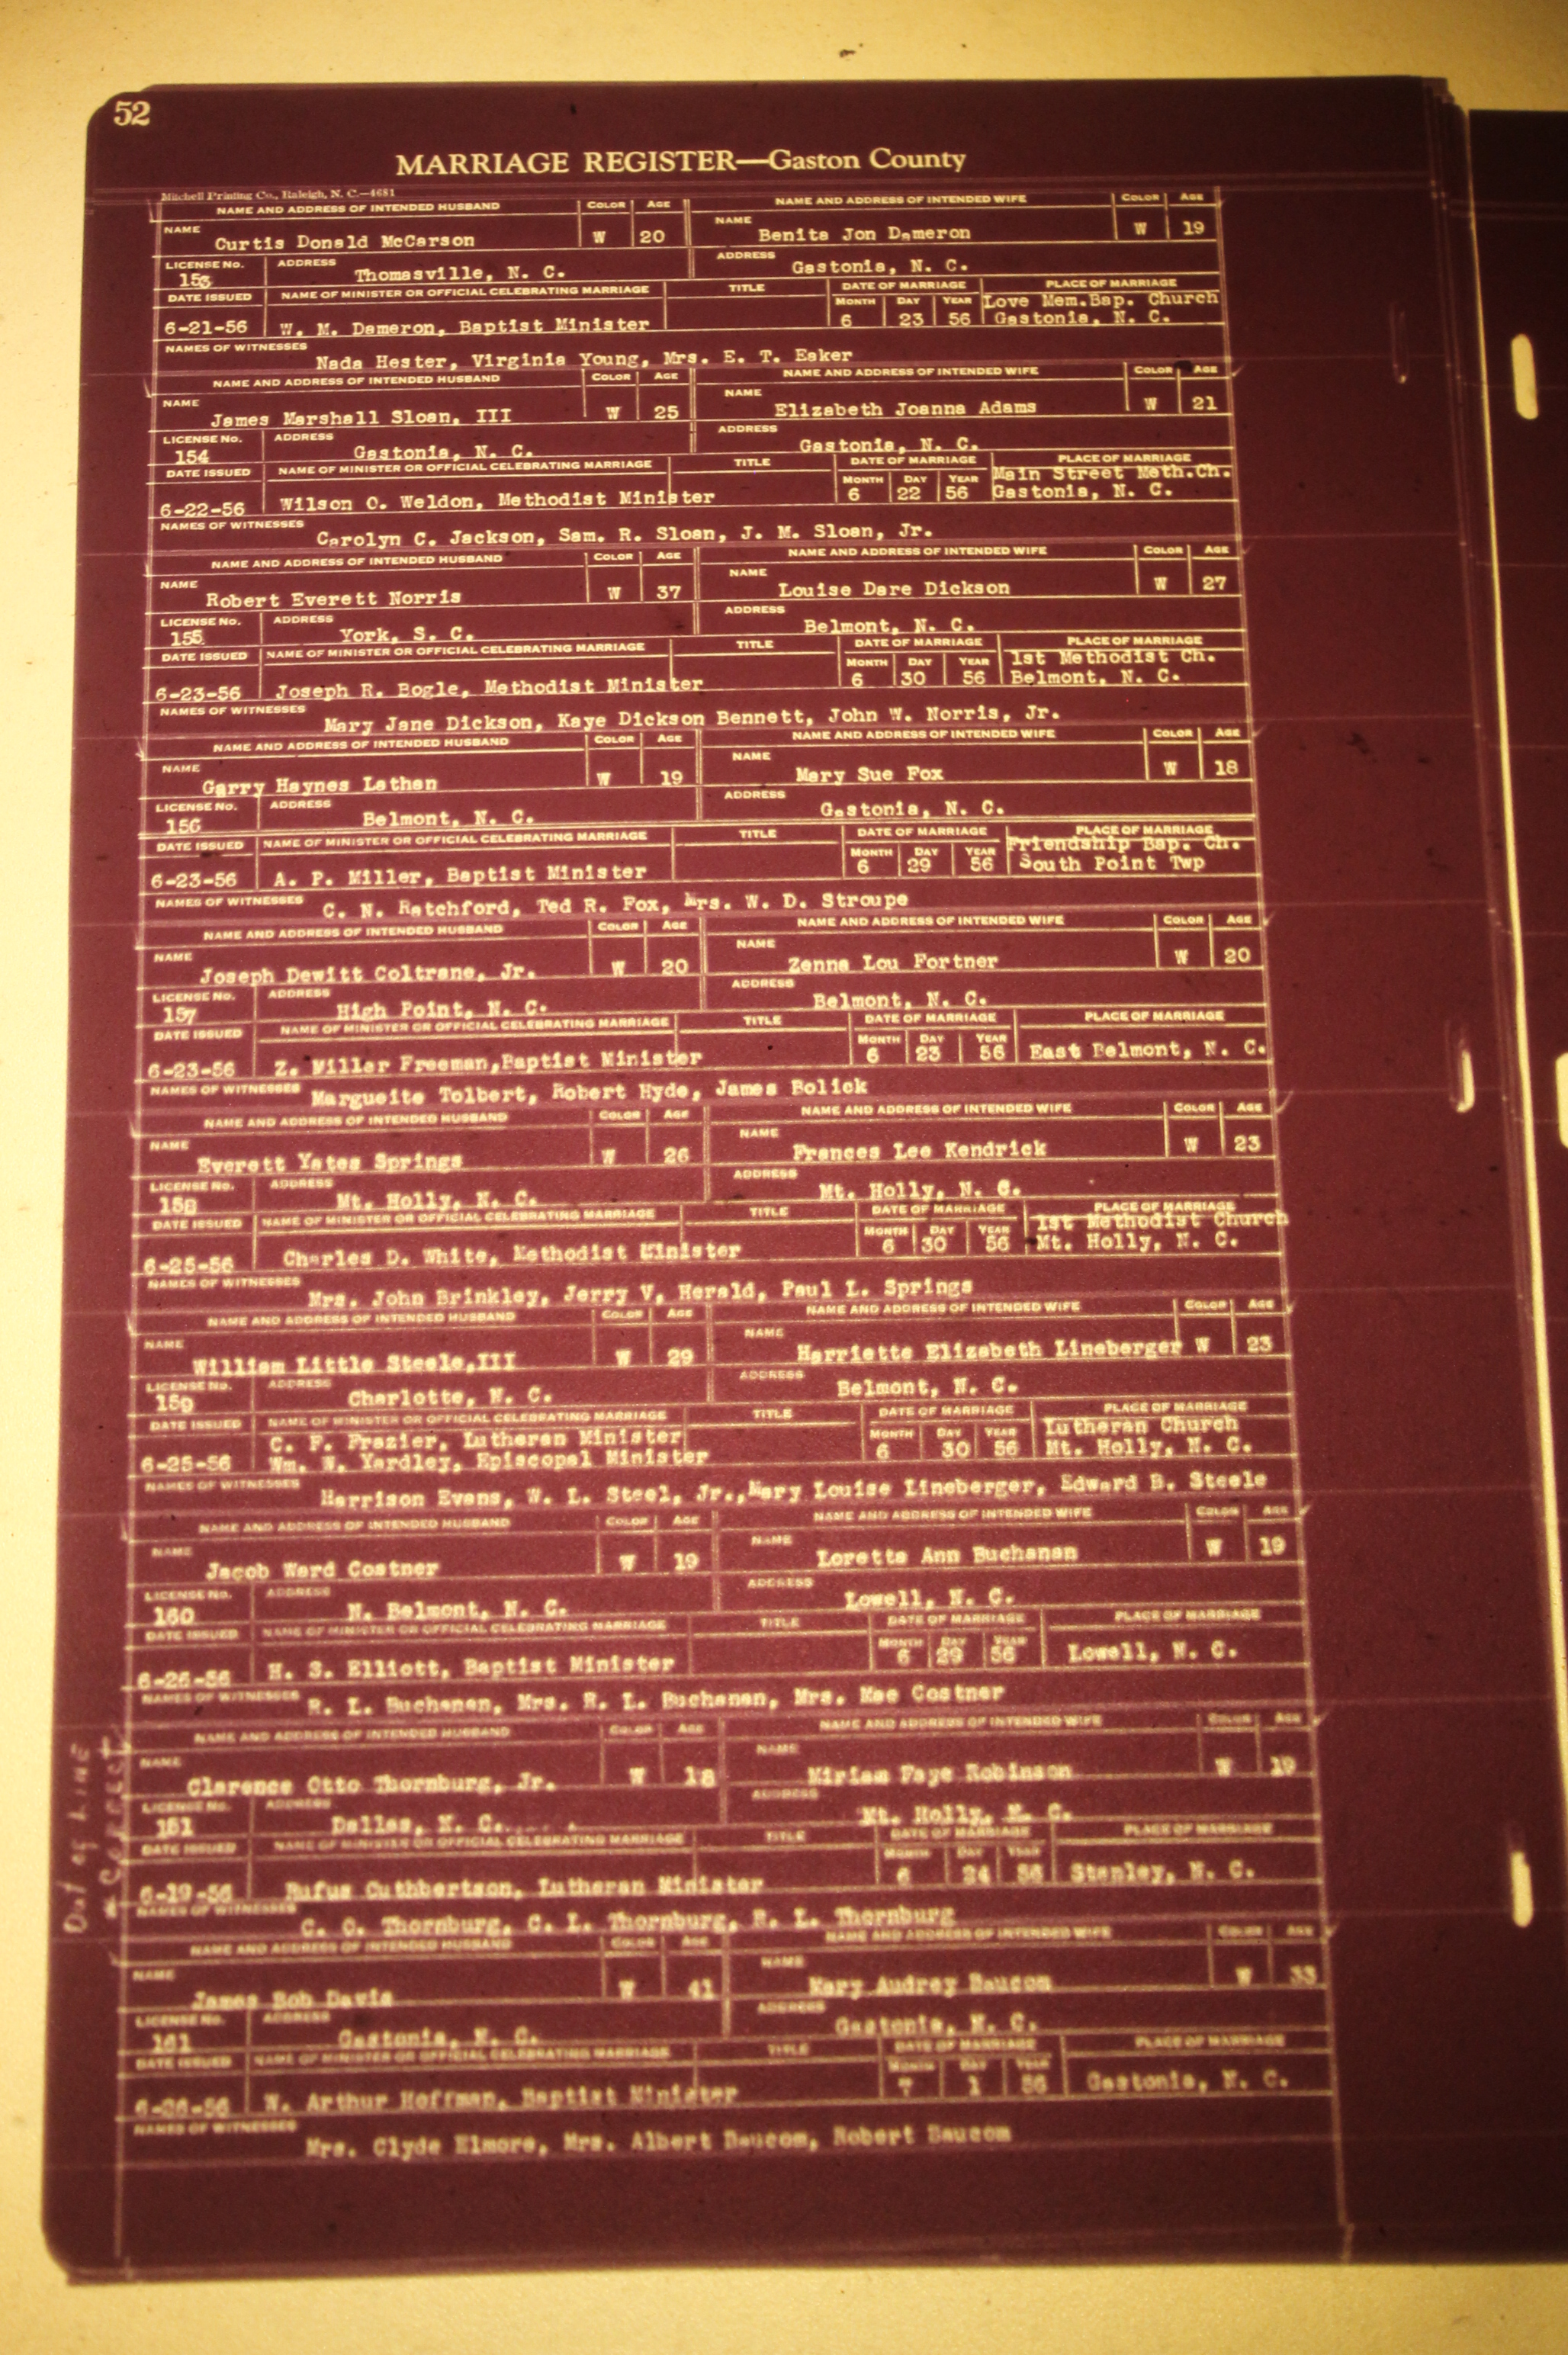 52
MARRIAGE REGISTER—Gaston County
Mitchell Printing Co., Raleigh, N. C.—4681
NAME AND ADDRESS OF INTENDED HUSBAND COLOR AGE NAME AND ADDRESS OF INTENDED WIFE COLOR AGE
NAME Curtis Donald McCarson W 20 NAME Benita Jon Dameron W 19
LICENSE No. 153 ADDRESS Thomasville, N. C. ADDRESS Gastonia, N. C.
DATE ISSUED NAME OF MINISTER OR OFFICIAL CELEBRATING MARRIAGE TITLE DATE OF MARRIAGE PLACE OF MARRIAGE
MONTH DAY YEAR Love Mem.Bap. Church
6-21-56 W. M. Dameron, Baptist Minister 6 23 56 Gastonia, N. C.
NAMES OF WITNESSES Nada Hester, Virginia Young, Mrs. E. T. Eaker
NAME AND ADDRESS OF INTENDED HUSBAND COLOR AGE NAME AND ADDRESS OF INTENDED WIFE COLOR AGE
NAME James Marshall Sloan, III W 25 NAME Elizabeth Joanna Adams W 21
LICENSE No. 154 ADDRESS Gastonia, N. C. ADDRESS Gastonia, N. C.
DATE ISSUED NAME OF MINISTER OR OFFICIAL CELEBRATING MARRIAGE TITLE DATE OF MARRIAGE PLACE OF MARRIAGE
MONTH DAY YEAR Main Street Meth.Ch.
6-22-56 Wilson O. Weldon, Methodist Minister 6 22 56 Gastonia, N. C.
NAMES OF WITNESSES Carolyn C. Jackson, Sam. R. Sloan, J. M. Sloan, Jr.
NAME AND ADDRESS OF INTENDED HUSBAND COLOR AGE NAME AND ADDRESS OF INTENDED WIFE COLOR AGE
NAME Robert Everett Norris W 37 NAME Louise Dare Dickson W 27
LICENSE No. 155 ADDRESS York, S. C. ADDRESS Belmont, N. C.
DATE ISSUED NAME OF MINISTER OR OFFICIAL CELEBRATING MARRIAGE TITLE DATE OF MARRIAGE PLACE OF MARRIAGE
MONTH DAY YEAR 1st Methodist Ch.
6-23-56 Joseph R. Bogle, Methodist Minister 6 30 56 Belmont, N. C.
NAMES OF WITNESSES Mary Jane Dickson, Kaye Dickson Bennett, John W. Norris, Jr.
NAME AND ADDRESS OF INTENDED HUSBAND COLOR AGE NAME AND ADDRESS OF INTENDED WIFE COLOR AGE
NAME Garry Haynes Lathan W 19 NAME Mary Sue Fox W 18
LICENSE No. 156 ADDRESS Belmont, N. C. ADDRESS Gastonia, N. C.
DATE ISSUED NAME OF MINISTER OR OFFICIAL CELEBRATING MARRIAGE TITLE DATE OF MARRIAGE PLACE OF MARRIAGE
MONTH DAY YEAR Friendship Bap. Ch.
6-23-56 A. P. Miller, Baptist Minister 6 29 56 South Point Twp
NAMES OF WITNESSES C. N. Ratchford, Ted R. Fox, Mrs. W. D. Stroupe
NAME AND ADDRESS OF INTENDED HUSBAND COLOR AGE NAME AND ADDRESS OF INTENDED WIFE COLOR AGE
NAME Joseph Dewitt Coltrane, Jr. W 20 NAME Zenna Lou Fortner W 20
LICENSE No. 157 ADDRESS High Point, N. C. ADDRESS Belmont, N. C.
DATE ISSUED NAME OF MINISTER OR OFFICIAL CELEBRATING MARRIAGE TITLE DATE OF MARRIAGE PLACE OF MARRIAGE
MONTH DAY YEAR
6-23-56 Z. Miller Freeman,Baptist Minister 6 23 56 East Belmont, N. C.
NAMES OF WITNESSES Margueite Tolbert, Robert Hyde, James Bolick
NAME AND ADDRESS OF INTENDED HUSBAND COLOR AGE NAME AND ADDRESS OF INTENDED WIFE COLOR AGE
NAME Everett Yates Springs W 26 NAME Frances Lee Kendrick W 23
LICENSE No. 158 ADDRESS Mt. Holly, N. C. ADDRESS Mt. Holly, N. C.
DATE ISSUED NAME OF MINISTER OR OFFICIAL CELEBRATING MARRIAGE TITLE DATE OF MARRIAGE PLACE OF MARRIAGE
MONTH DAY YEAR 1st Methodist Church
6-25-56 Charles D. White, Methodist Minister 6 30 56 Mt. Holly, N. C.
NAMES OF WITNESSES Mrs. John Brinkley, Jerry V. Herald, Paul L. Springs
NAME AND ADDRESS OF INTENDED HUSBAND COLOR AGE NAME AND ADDRESS OF INTENDED WIFE COLOR AGE
NAME William Little Steele,III W 29 NAME Harriette Elizabeth Lineberger W 23
LICENSE No. 159 ADDRESS Charlotte, N. C. ADDRESS Belmont, N. C.
DATE ISSUED NAME OF MINISTER OR OFFICIAL CELEBRATING MARRIAGE TITLE DATE OF MARRIAGE PLACE OF MARRIAGE
C. F. Frazier, Lutheran Minister MONTH DAY YEAR Lutheran Church
6-25-56 Wm. W. Yardley, Episcopal Minister 6 30 56 Mt. Holly, N. C.
NAMES OF WITNESSES Harrison Evans, W. L. Steel, Jr.,Mary Louise Lineberger, Edward B. Steele
NAME AND ADDRESS OF INTENDED HUSBAND COLOR AGE NAME AND ADDRESS OF INTENDED WIFE COLOR AGE
NAME Jacob Ward Costner W 19 NAME Loretta Ann Buchanan W 19
LICENSE No. 160 ADDRESS N. Belmont, N. C. ADDRESS Lowell, N. C.
DATE ISSUED NAME OF MINISTER OR OFFICIAL CELEBRATING MARRIAGE TITLE DATE OF MARRIAGE PLACE OF MARRIAGE
MONTH DAY YEAR
6-26-56 H. S. Elliott, Baptist Minister 6 29 56 Lowell, N. C.
NAMES OF WITNESSES R. L. Buchanan, Mrs. R. L. Buchanan, Mrs. Mae Costner
NAME AND ADDRESS OF INTENDED HUSBAND COLOR AGE NAME AND ADDRESS OF INTENDED WIFE COLOR AGE
NAME Clarence Otto Thornburg, Jr. W 18 NAME Miriam Faye Robinson W 19
LICENSE No. 151 ADDRESS Dallas, N. C. ADDRESS Mt. Holly, N. C.
DATE ISSUED NAME OF MINISTER OR OFFICIAL CELEBRATING MARRIAGE TITLE DATE OF MARRIAGE PLACE OF MARRIAGE
MONTH DAY YEAR
6-19-56 Rufus Cuthbertson, Lutheran Minister 6 24 56 Stanley, N. C.
NAMES OF WITNESSES C. O. Thornburg, C. L. Thornburg, R. L. Thornburg
Out of Line
CORRECT
NAME AND ADDRESS OF INTENDED HUSBAND COLOR AGE NAME AND ADDRESS OF INTENDED WIFE COLOR AGE
NAME James Bob Davis W 41 NAME Mary Audrey Baucom W 33
LICENSE No. 161 ADDRESS Gastonia, N. C. ADDRESS Gastonia, N. C.
DATE ISSUED NAME OF MINISTER OR OFFICIAL CELEBRATING MARRIAGE TITLE DATE OF MARRIAGE PLACE OF MARRIAGE
MONTH DAY YEAR
6-26-56 W. Arthur Hoffman, Baptist Minister 7 1 56 Gastonia, N. C.
NAMES OF WITNESSES Mrs. Clyde Elmore, Mrs. Albert Baucom, Robert Baucom